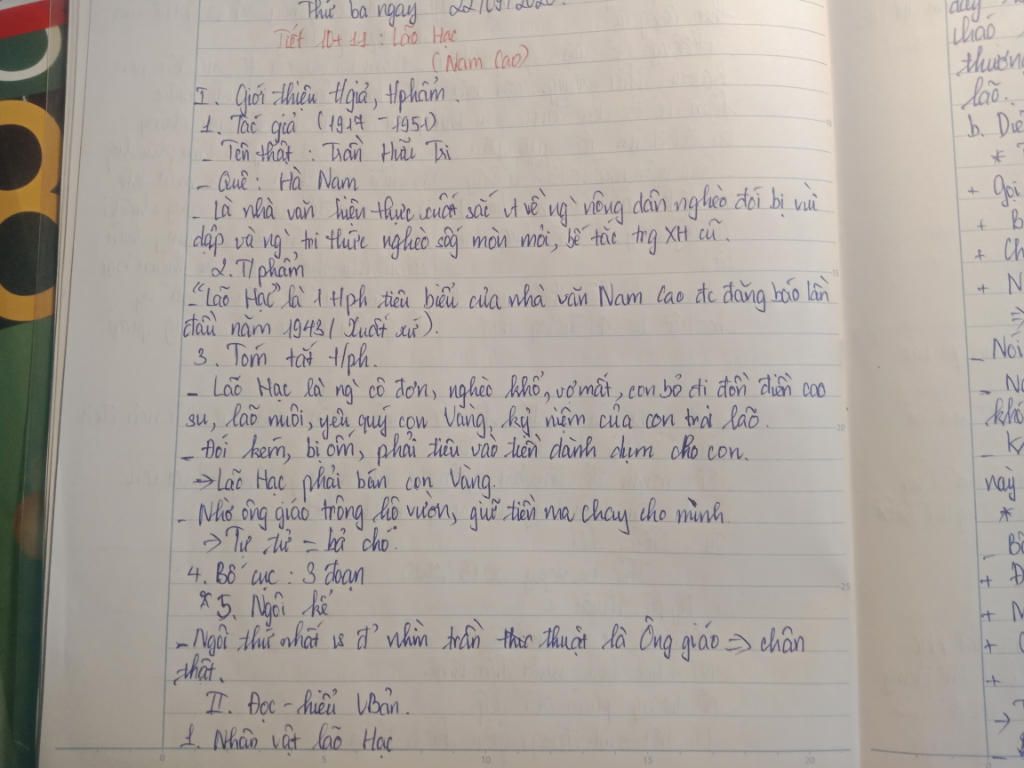 Thứ ba ngày 22/09/2020.
Tiết 10+11: Lão Hạc
(Nam Cao)
I. Giới thiệu t/giả, t/phẩm.
1. Tác giả (1917-1951)
- Tên thật: Trần Hữu Tri
- Quê: Hà Nam
- Là nhà văn hiện thực xuất sắc vt về ng` nông dân nghèo đói bị vùi
dập và ng` tri thức nghèo sống mòn mỏi, bế tắc trg XH cũ.
2. T/phẩm
- "Lão Hạc" là 1 t/ph tiêu biểu của nhà văn Nam Cao đc đăng báo lần
đầu năm 1943/ (Xuất xứ).
3. Tóm tắt t/ph.
- Lão Hạc là ng` cô đơn, nghèo khổ, vợ mất, con bỏ đi đồn điền cao
su, lão nuôi, yêu quý con Vàng, kỷ niệm của con trai lão.
- Đói kém, bị ốm, phải tiêu vào tiền dành dụm cho con.
→ Lão Hạc phải bán con Vàng.
- Nhờ ông giáo trông hộ vườn, giữ tiền ma chay cho mình
→ Tự tử = bả chó.
4. Bố cục: 3 đoạn
* 5. Ngôi kể
- Ngôi thứ nhất is đ' nhìn trần thuật là Ông giáo => chân
thật.
II. Đọc - hiểu VBản.
1. Nhân vật lão Hạc
cháo
thương
lão.
b.
*
+ Gọi
+ B
+ Ch
+ N
=>
- Nói
khô
này
*
+
+
+
+
→